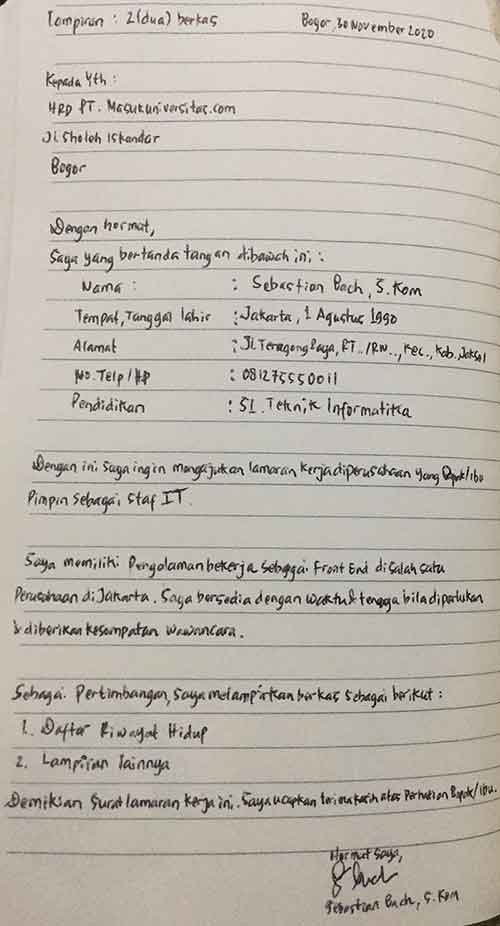 Lampiran : 2 (dua) berkas Bogor, 30 November 2020
Kepada Yth :
HRD PT. Masukuniversitas.com
Jl Sholeh Iskandar
Bogor
Dengan hormat,
Saya yang bertanda tangan dibawah ini :
Nama : : Sebastian Bach, S.Kom
Tempat, Tanggal lahir : Jakarta, 1 Agustus 1990
Alamat : Jl. Terogong Raya, RT../RW.., Kec., Kab. Jaksel
No. Telp/HP : 081275550011
Pendidikan : S1. Teknik Informatika
Dengan ini saya ingin mengajukan lamaran kerja diperusahaan yang Bapak/ibu
Pimpin sebagai staf IT.
Saya memiliki Pengalaman bekerja sebagai Front End disalah satu
Perusahaan di Jakarta. Saya bersedia dengan waktu & tenaga bila diperlukan
& diberikan kesempatan wawancara.
Sebagai Pertimbangan, saya melampirkan berkas sebagai berikut :
1. Daftar Riwayat Hidup
2. Lampiran lainnya
Demikian surat lamaran kerja ini. Saya ucapkan terima kasih atas Perhatian Bapak/ibu.
Hormat saya,
Sebastian Bach, S.Kom